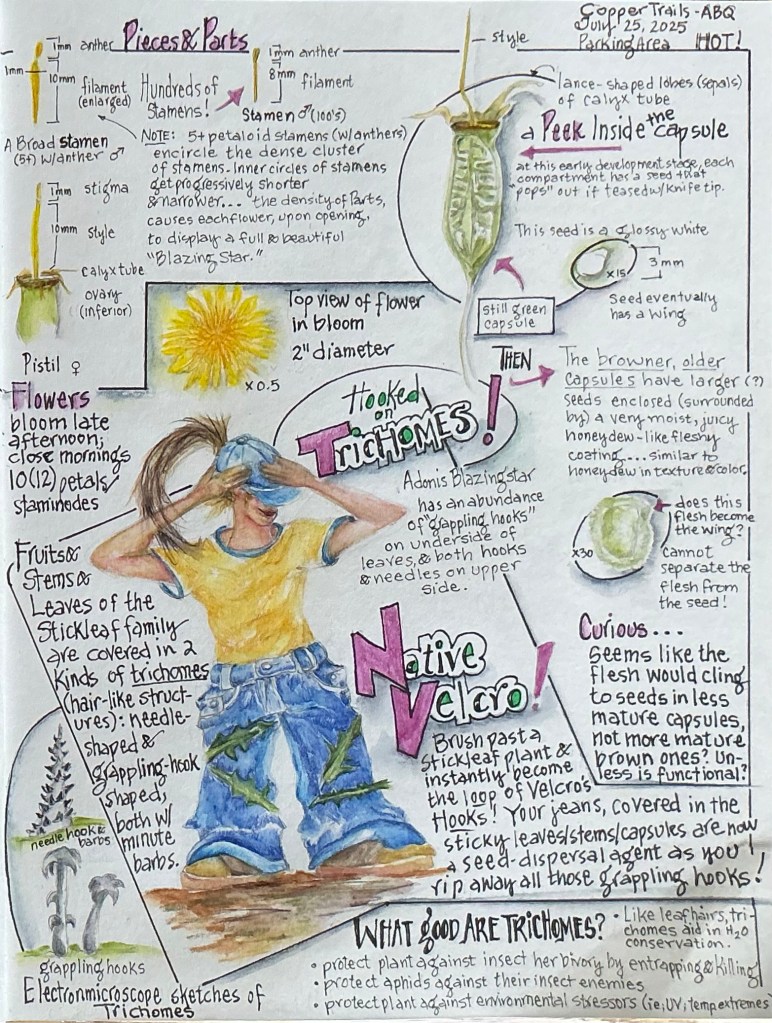 Copper Trails - ABQ
July 25, 2025
Parking Area HOT!
Pieces & Parts
1mm anther
1mm
10mm
filament
(enlarged)
A Broad stamen
(5+) w/anther ♂
Hundreds of
Stamens!
1mm anther
8mm
filament
Stamen ♂ (100's)
NOTE: 5+ petaloid stamens (w/anthers)
encircle the dense cluster
of stamens. Inner circles of stamens
get progressively shorter
& narrower... the density of parts,
causes each flower, upon opening,
to display a full & beautiful
"Blazing Star."
1mm stigma
10mm style
calyx tube
ovary
(inferior)
Pistil ♀
style
lance-shaped lobes (sepals)
of calyx tube
a Peek Inside the capsule
at this early development stage, each
compartment has a seed that
"pops" out if teased w/knife tip.
This seed is a glossy white
x15
3 mm
Seed eventually
has a wing
still green
capsule
Top view of flower
in bloom
2" diameter
x 0.5
Flowers
bloom late
afternoon;
close mornings
10(12) petals/
staminodes
THEN
The browner, older
Capsules have larger (?)
seeds enclosed (surrounded
by) a very moist, juicy
honeydew-like fleshy
coating... similar to
honeydew in texture & color.
x30
does this
flesh become
the wing?
Cannot
separate the
flesh from
the seed!
Hooked
on
Trichomes!
Adonis Blazingstar
has an abundance
of "grappling hooks"
on underside of
leaves, & both hooks
& needles on upper
side.
Fruits &
Stems &
Leaves of the
Stickleaf family
are covered in 2
kinds of trichomes
(hair-like struct-
ures): needle-
shaped &
grappling-hook
shaped,
both w/
minute
barbs.
Curious...
Seems like the
flesh would cling
to seeds in less
mature capsules,
not more mature
brown ones? Un-
less is functional?
Native
Velcro!
Brush past a
stickleaf plant &
instantly become
the loop of Velcro's
Hooks! Your jeans, covered in the
sticky leaves/stems/capsules are now
a seed-dispersal agent as you
rip away all those grappling hooks!
needle hook &
barbs
grappling hooks
Electronmicroscope sketches of
Trichomes
WHAT good ARE TRICHOMES?
• Like leaf hairs, tri-
chomes aid in H2O
conservation.
• protect plant against insect herbivory by entrapping & killing
• protect aphids against their insect enemies
• protect plant against environmental stressors (ie; UV; temp extremes